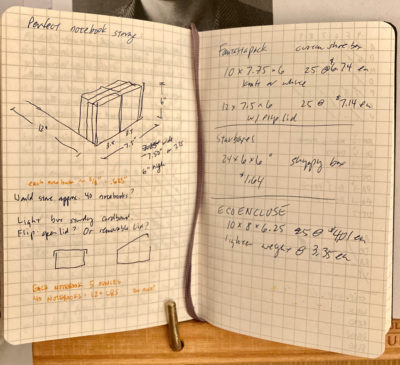 Perfect notebook storage
6"
12"
3.5
3.5
7.5"
7.55" or 7.75
6" high
Would store approx. 40 notebooks?
Light but sturdy cardboard.
Flip-open lid? Or removable lid?
EACH NOTEBOOK 5 OUNCES
40 NOTEBOOKS = 12+ LBS
custom shoe box
10 x 7.75 x 6 25 @ $6.74 ea
Kraft or white
12 x 7.5 x 6 25 @ $7.14 ea
w/ flip lid
Starboxes
24 x 6 x 6" shipping box
$1.64
ECOENCLOSE
10 x 8 x 6.25 25 @ $4.01 ea
lighter weight @ 3.35 ea